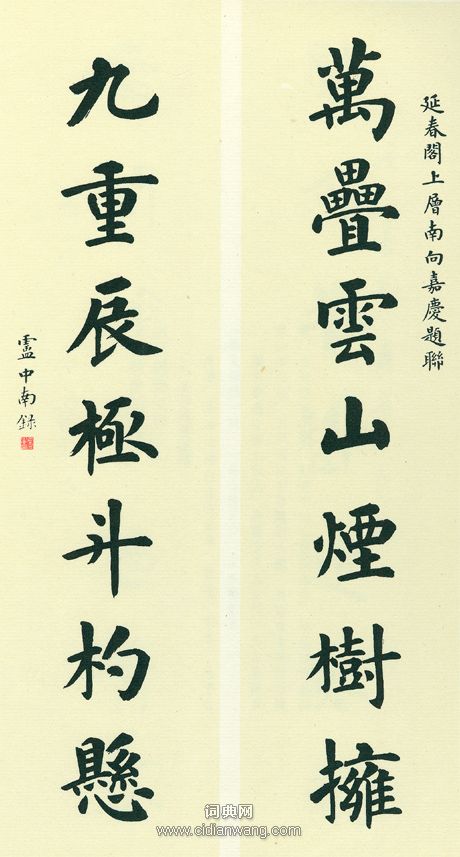 延春閣上層南向嘉慶題聯
萬疊雲山煙樹擁
九重辰極斗杓懸
盧中南錄
词典网
www.cidianwang.com